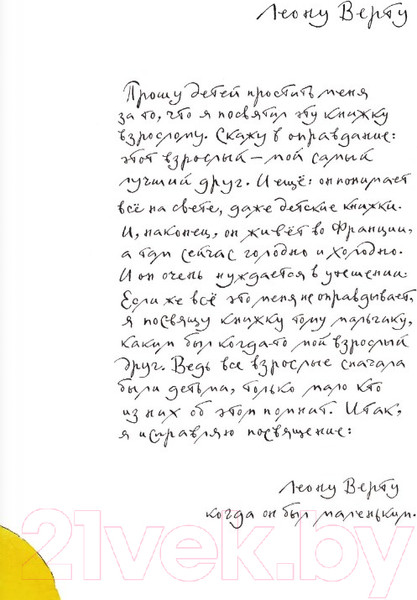 Леону Верту
Прошу детей простить меня
за то, что я посвятил эту книжку
взрослому. Скажу в оправдание:
этот взрослый – мой самый
лучший друг. И ещё: он понимает
всё на свете, даже детские книжки.
И, наконец, он живёт во Франции,
а там сейчас голодно и холодно.
И он очень нуждается в утешении.
Если же всё это меня не оправдывает,
я посвящу книжку тому мальчику,
каким был когда-то мой взрослый
друг. Ведь все взрослые сначала
были детьми, только мало кто
из них об этом помнит. Итак,
я исправляю посвящение:
Леону Верту
когда он был маленьким.
21vek.by